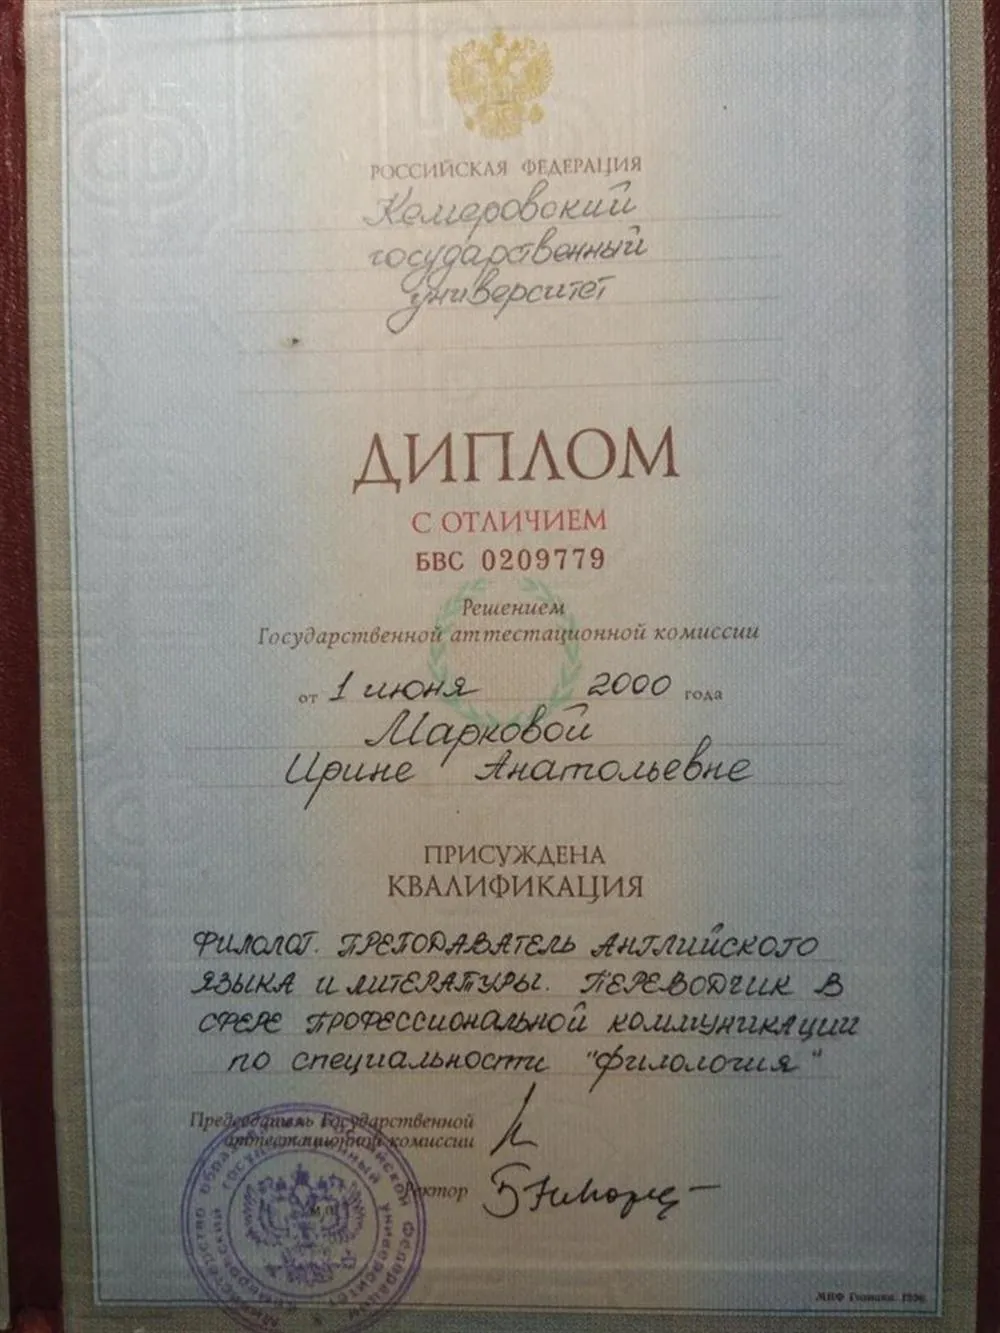 РОССИЙСКАЯ ФЕДЕРАЦИЯ
Кемеровский
государственный
университет
ДИПЛОМ
С ОТЛИЧИЕМ
БВС 0209779
Решением
Государственной аттестационной комиссии
от 1 июня 2000 года
Марковой
Ирине Анатольевне
ПРИСУЖДЕНА
КВАЛИФИКАЦИЯ
ФИЛОЛОГ. ПРЕПОДАВАТЕЛЬ АНГЛИЙСКОГО
ЯЗЫКА И ЛИТЕРАТУРЫ. ПЕРЕВОДЧИК В
СФЕРЕ ПРОФЕССИОНАЛЬНОЙ КОММУНИКАЦИИ
ПО СПЕЦИАЛЬНОСТИ "ФИЛОЛОГИЯ"
Председатель Государственной
аттестационной комиссии
Ректор
М.П.
МПФ Гознака. 1996